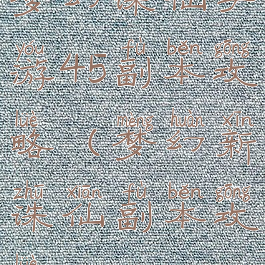 yóu fù běn gōng
游45副本攻
lüè mèng huàn xīn
略(梦幻新
zhū xiān fù běn gōng
诛仙副本攻